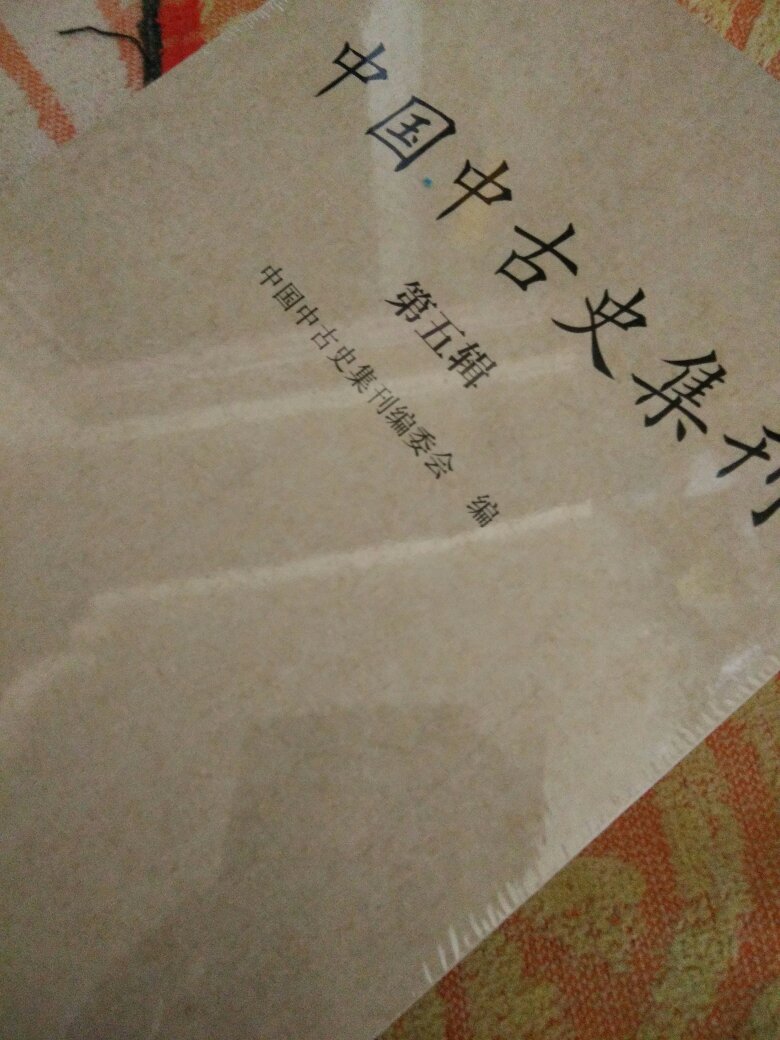 中国中古史集刊
第五辑
中国中古史集刊编委会 编